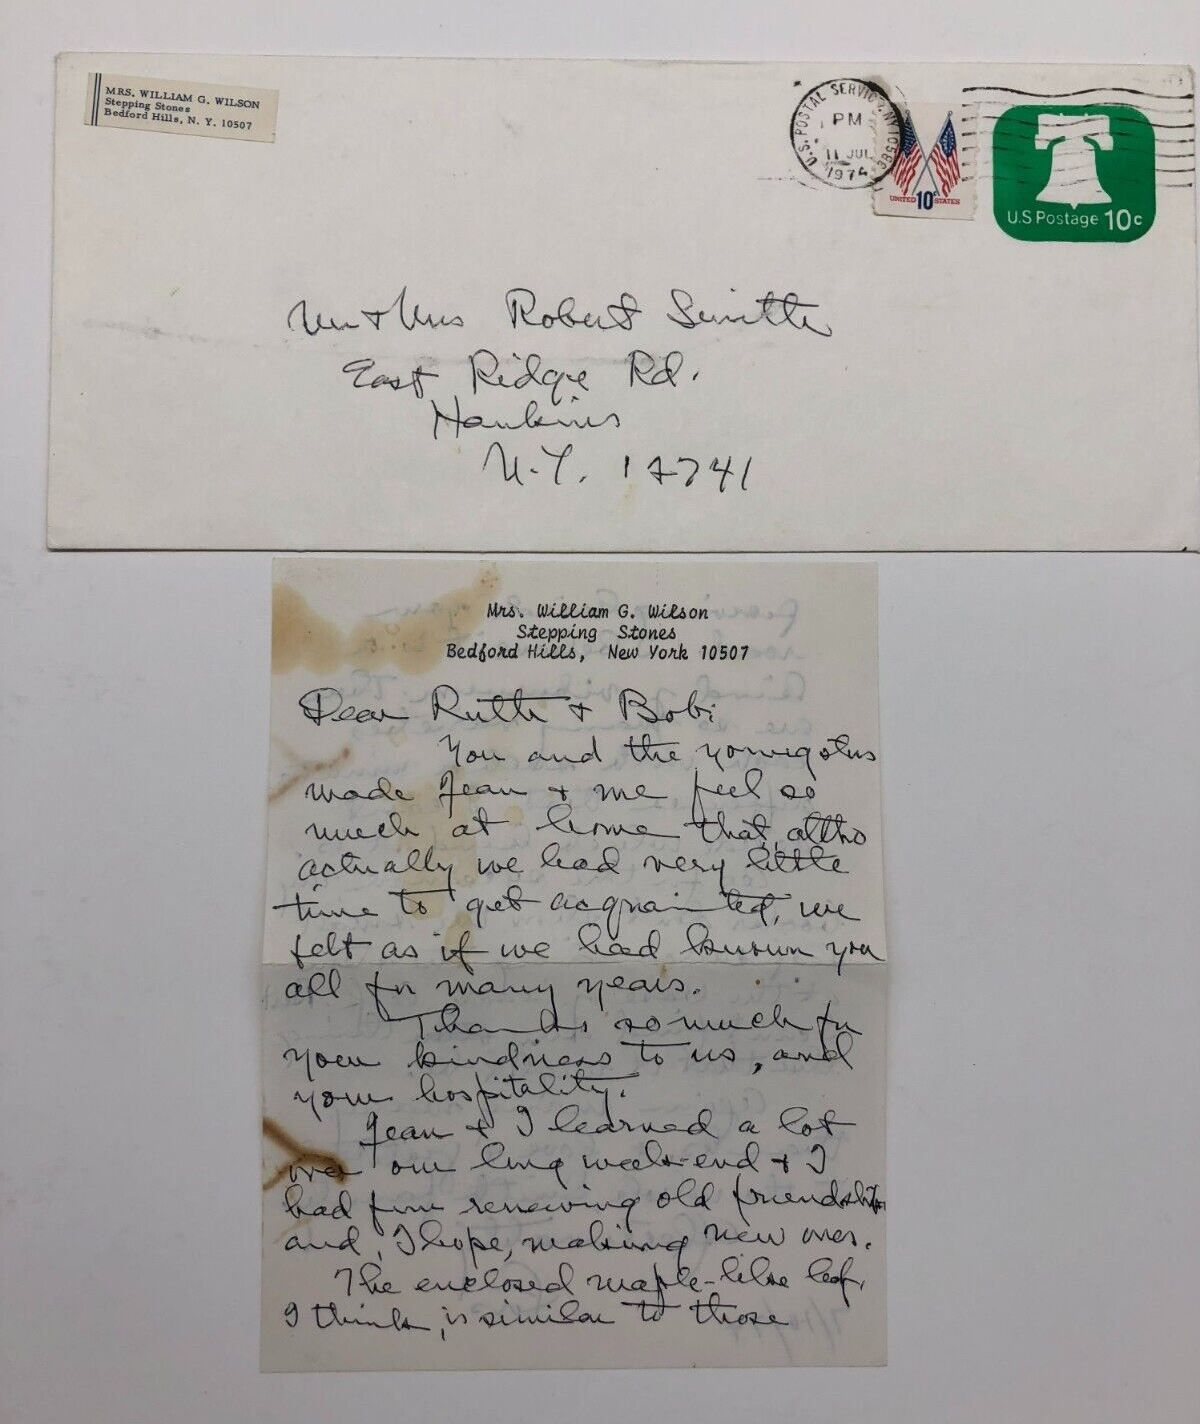 MRS. WILLIAM G. WILSON
Stepping Stones
Bedford Hills, N. Y. 10507
U.S. POSTAL SERVICE NY 105
PM
11 JUL
1974
UNITED 10c STATES
U.S Postage 10c
Mr + Mrs Robert Smith
East Ridge Rd.
Hankins
N.Y. 12741
Mrs. William G. Wilson
Stepping Stones
Bedford Hills, New York 10507
Dear Ruth & Bob:
You and the youngsters
made Jean & me feel so
much at home that, altho
actually we had very little
time to get acquainted, we
felt as if we had known you
all for many years.
Thanks so much for
your kindness to us, and
your hospitality.
Jean & I learned a lot
over our long week-end & I
had fun renewing old friendships
and, I hope, making new ones.
The enclosed maple-like leaf,
I think, is similar to those